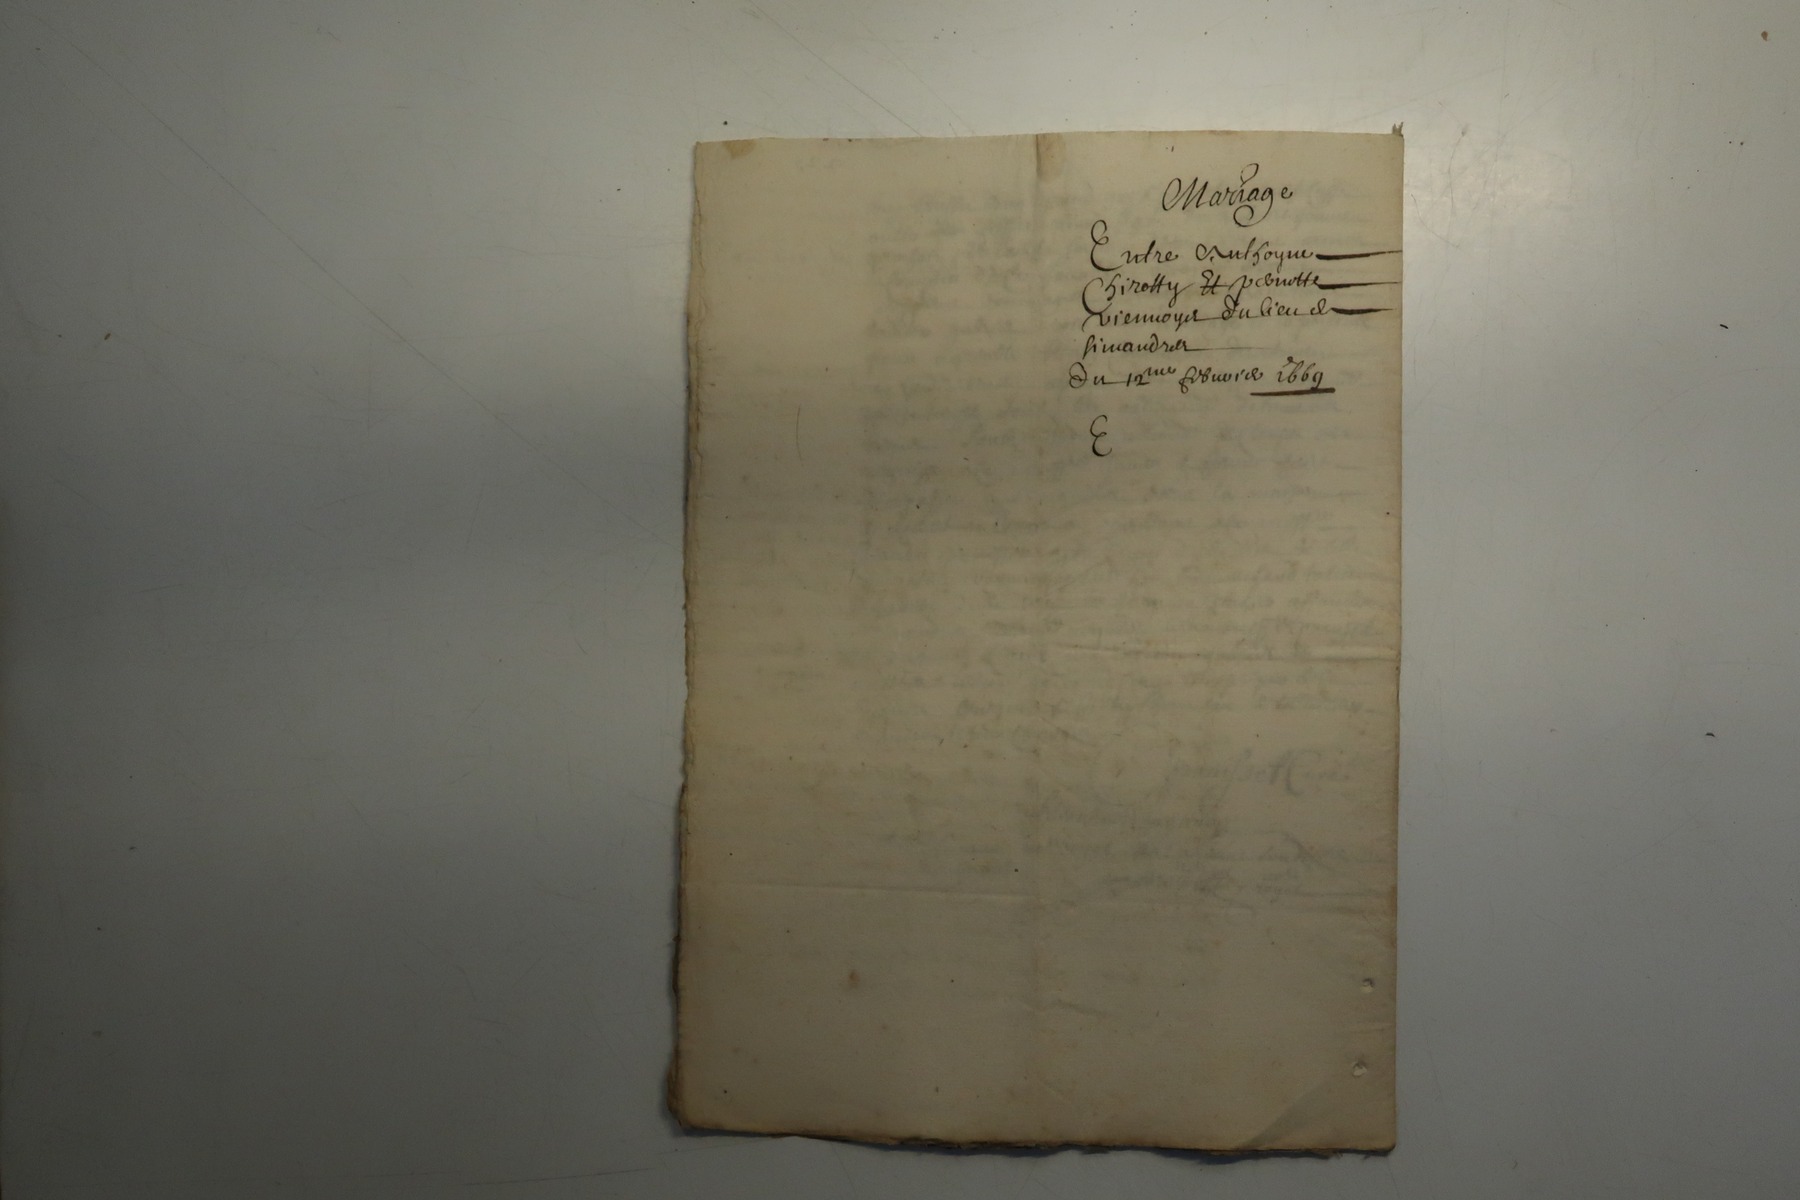 Mariage
Entre Anthoyne
Chirotty Et pernotte
viennoys du lieu de
simandres
du 12me febvrier 1669
E